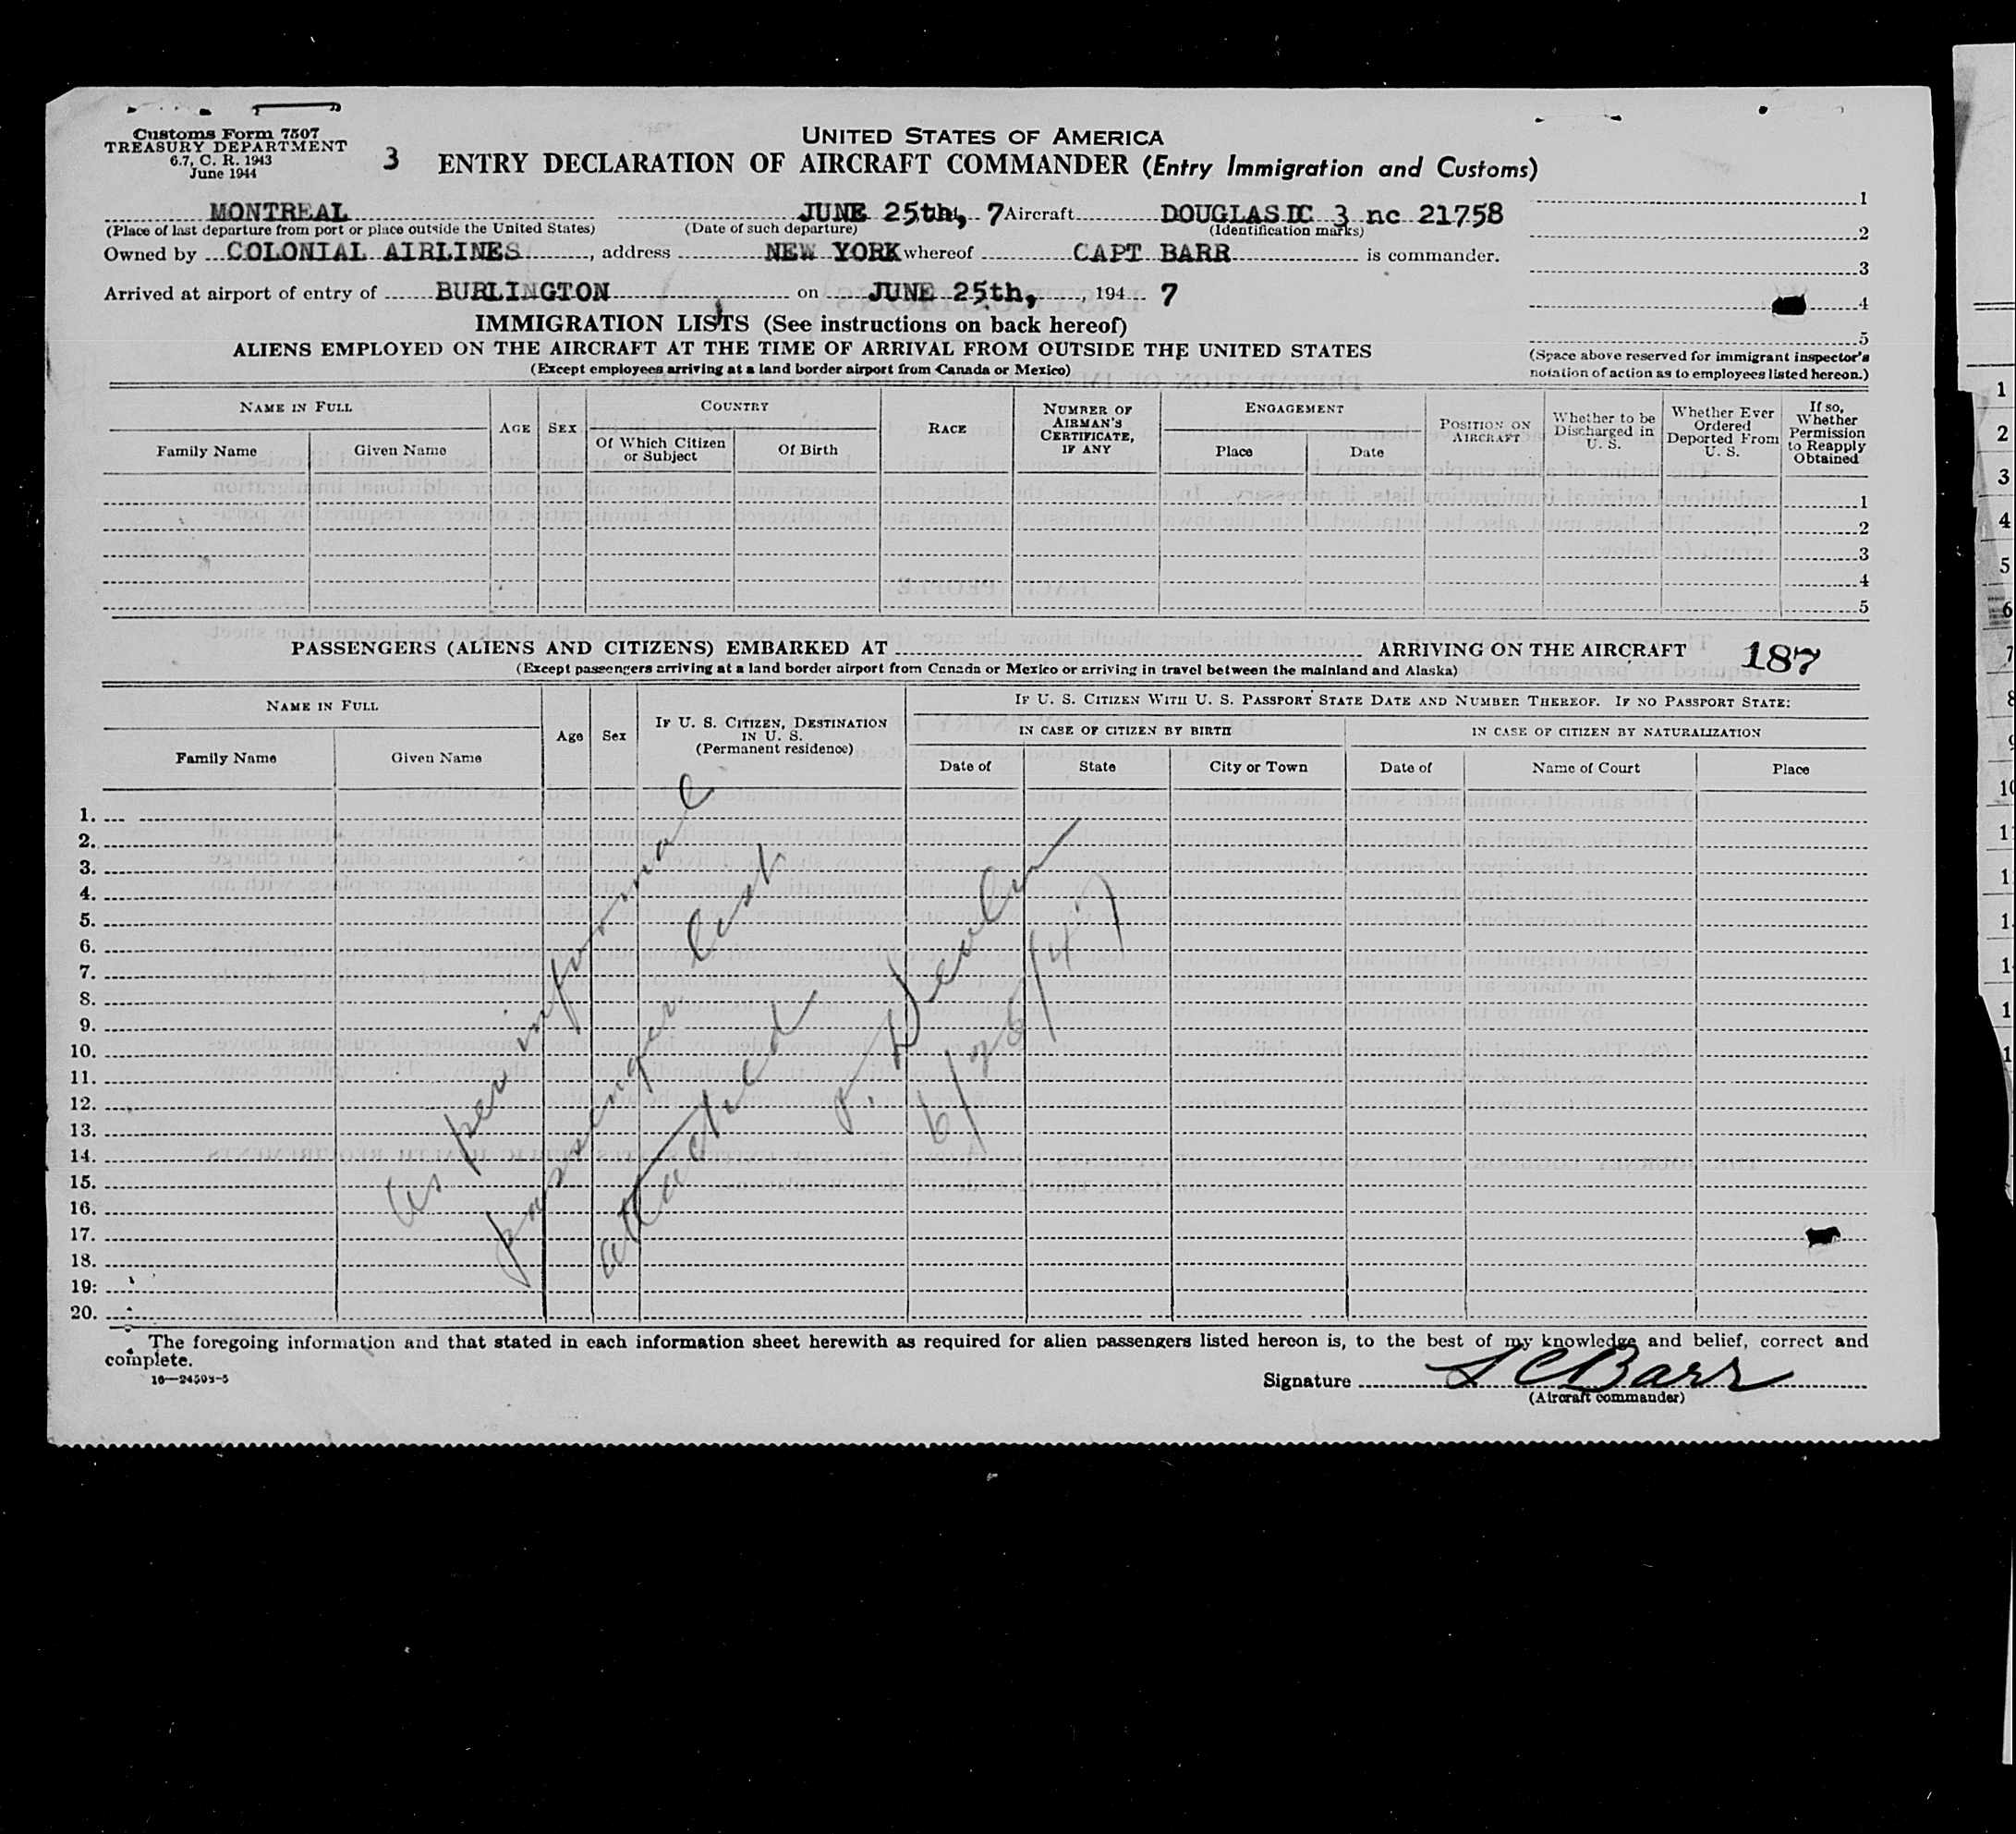 Customs Form 7507
TREASURY DEPARTMENT
6.7, C. R. 1943
June 1944
3
UNITED STATES OF AMERICA
ENTRY DECLARATION OF AIRCRAFT COMMANDER (Entry Immigration and Customs)
MONTREAL JUNE 25th, 7 Aircraft DOUGLAS DC 3 nc 21758
(Place of last departure from port or place outside the United States) (Date of such departure) (Identification marks)
Owned by COLONIAL AIRLINES, address NEW YORK whereof CAPT BARR is commander.
Arrived at airport of entry of BURLINGTON on JUNE 25th, , 194 7
1
2
3
4
5
(Space above reserved for immigrant inspector's
notation of action as to employees listed hereon.)
IMMIGRATION LISTS (See instructions on back hereof)
ALIENS EMPLOYED ON THE AIRCRAFT AT THE TIME OF ARRIVAL FROM OUTSIDE THE UNITED STATES
(Except employees arriving at a land border airport from Canada or Mexico)
NAME IN FULL
Family Name
Given Name
AGE
SEX
COUNTRY
Of Which Citizen
or Subject
Of Birth
RACE
NUMBER OF
AIRMAN'S
CERTIFICATE,
IF ANY
ENGAGEMENT
Place
Date
POSITION ON
AIRCRAFT
Whether to be
Discharged in
U. S.
Whether Ever
Ordered
Deported From
U. S.
If so,
Whether
Permission
to Reapply
Obtained
1
2
3
4
5
PASSENGERS (ALIENS AND CITIZENS) EMBARKED AT ARRIVING ON THE AIRCRAFT 187
(Except passengers arriving at a land border airport from Canada or Mexico or arriving in travel between the mainland and Alaska)
NAME IN FULL
Family Name
Given Name
Age
Sex
IF U. S. CITIZEN, DESTINATION
IN U. S.
(Permanent residence)
IF U. S. CITIZEN WITH U. S. PASSPORT STATE DATE AND NUMBER THEREOF. IF NO PASSPORT STATE:
IN CASE OF CITIZEN BY BIRTH
Date of
State
City or Town
IN CASE OF CITIZEN BY NATURALIZATION
Date of
Name of Court
Place
1.
2.
3.
4.
5.
6.
7.
8.
9.
10.
11.
12.
13.
14.
15.
16.
17.
18.
19.
20.
As per informal
passenger list
attached
The foregoing information and that stated in each information sheet herewith as required for alien passengers listed hereon is, to the best of my knowledge and belief, correct and
complete.
16—24503-5
Signature L C Barr
(Aircraft commander)
1
2
3
4
5
6
7
8